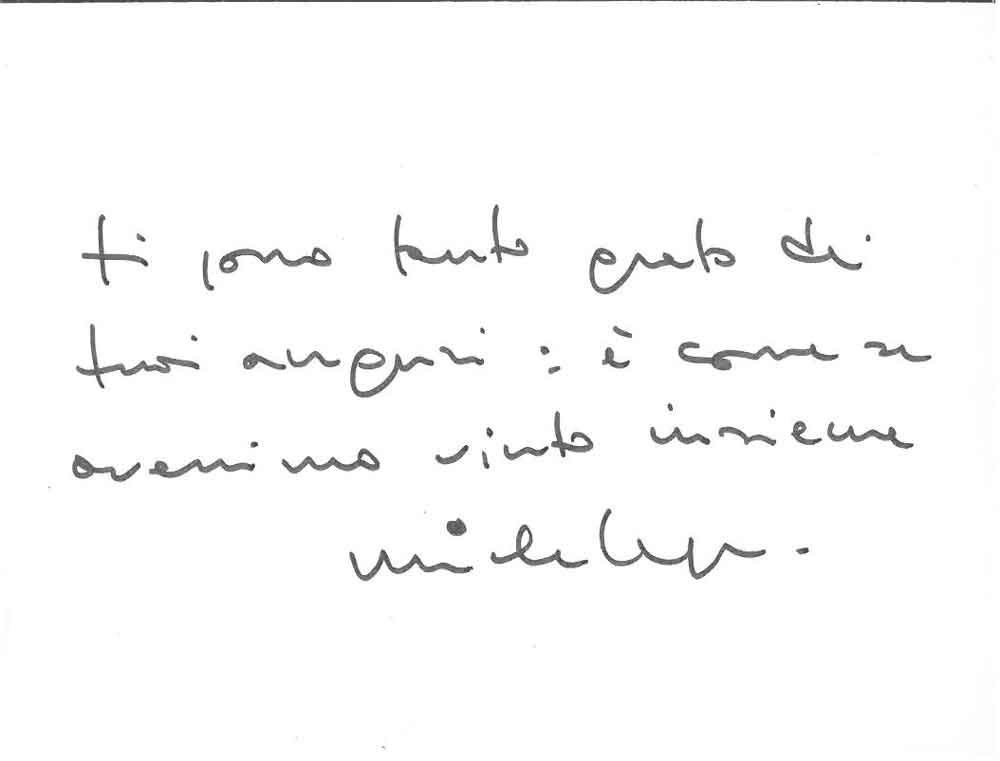 ti sono tanto grato dei
tuoi auguri: è come se
avessimo vinto insieme